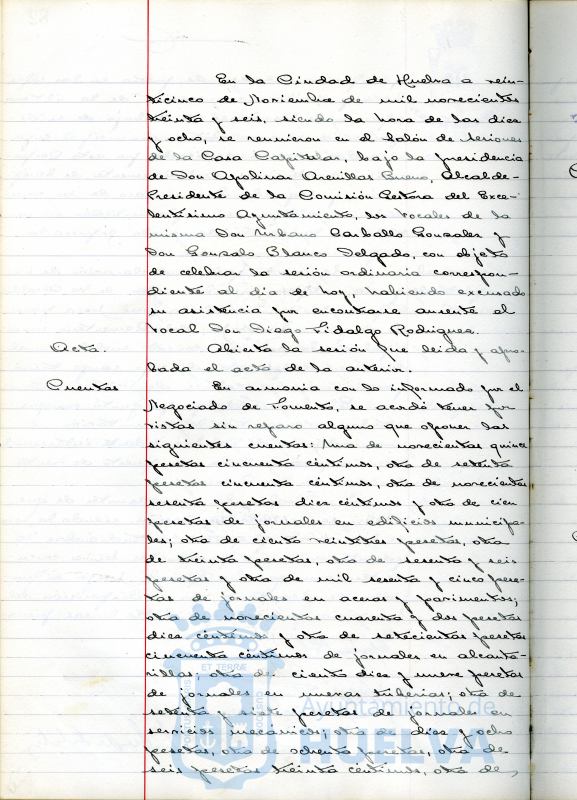 En la Ciudad de Huelva a vein-
ticinco de Noviembre de mil novecientos
treinta y seis, siendo la hora de las diez
y ocho, se reunieron en el Salón de sesiones
de la Casa Capitular, bajo la presidencia
de Don Apolinar Arenillas Bueno, Alcalde-
Presidente de la Comisión Gestora del Exce-
lentísimo Ayuntamiento, los vocales de la
misma Don Urbano Carballo Gonzalez y
Don Gonzalo Blanco Delgado, con objeto
de celebrar la sesión ordinaria correspon-
diente al dia de hoy, habiendo excusado
su asistencia por encontrarse ausente el
vocal Don Diego Fidalgo Rodriguez.
Acta. Abierta la sesión fue leida y apro-
bada el acta de la anterior.
Cuentas En armonia con lo informado por el
Negociado de Fomento, se acordó tener por
vistas sin reparo alguno que oponer las
siguientes cuentas: Una de novecientas quince
pesetas cincuenta céntimos, otra de setenta
pesetas cincuenta céntimos, otra de novecientas
sesenta pesetas diez céntimos y otra de cien
pesetas de jornales en edificios municipa-
les; otra de ciento veintitres pesetas, otra
de treinta pesetas, otra de sesenta y seis
pesetas y otra de mil sesenta y cinco pese-
tas de jornales en aceras y pavimentos;
otra de novecientas cuarenta y dos pesetas
diez céntimos y otra de setecientas pesetas
cincuenta céntimos de jornales en alcanta-
rillas; otra de ciento diez y nueve pesetas
de jornales en nuevas tuberias; otra de
setenta y siete pesetas de jornales en
servicios mecánicos; otra de diez y ocho
pesetas, otra de ochenta pesetas, otra de
seis pesetas treinta céntimos, otra de
ET TERRÆ
Ayuntamiento de
HUELVA